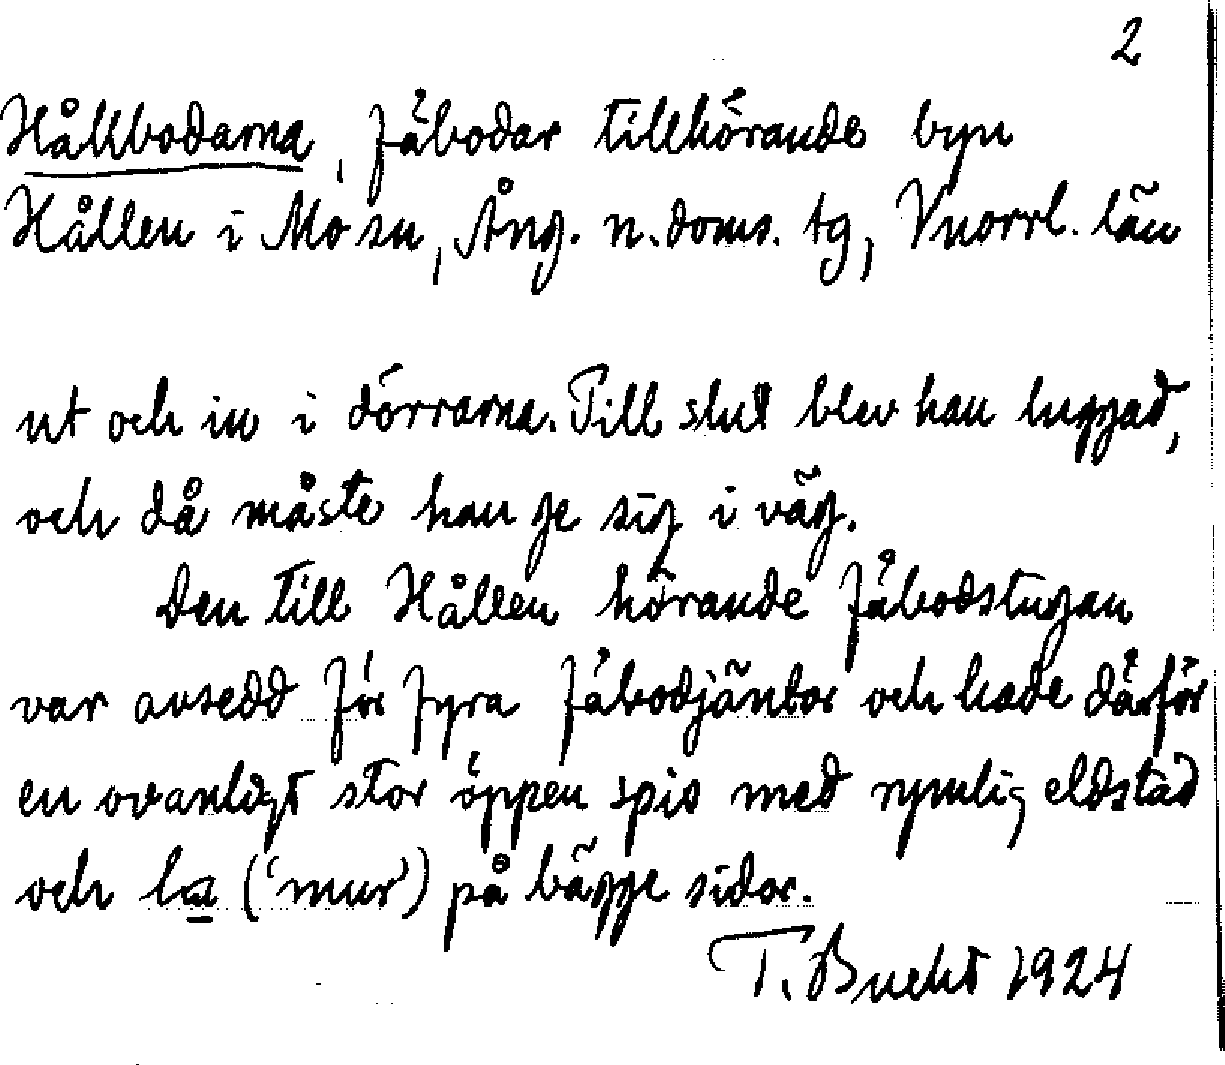 2
Hållbodarna, fäbodar tillhörande byn
Hållen i Mo sn, Ång. n. doms. tg, Vnorrl. län
ut och in i dörrarna. Till slut blev han luggad,
och då måste han ge sig i väg.
Den till Hållen hörande fäbodstugan
var avsedd för fyra fäbodjäntor och hade därför
en ovanligt stor öppen spis med rymlig eldstad
och la (‘mur’) på bägge sidor.
T. Bucht 1924